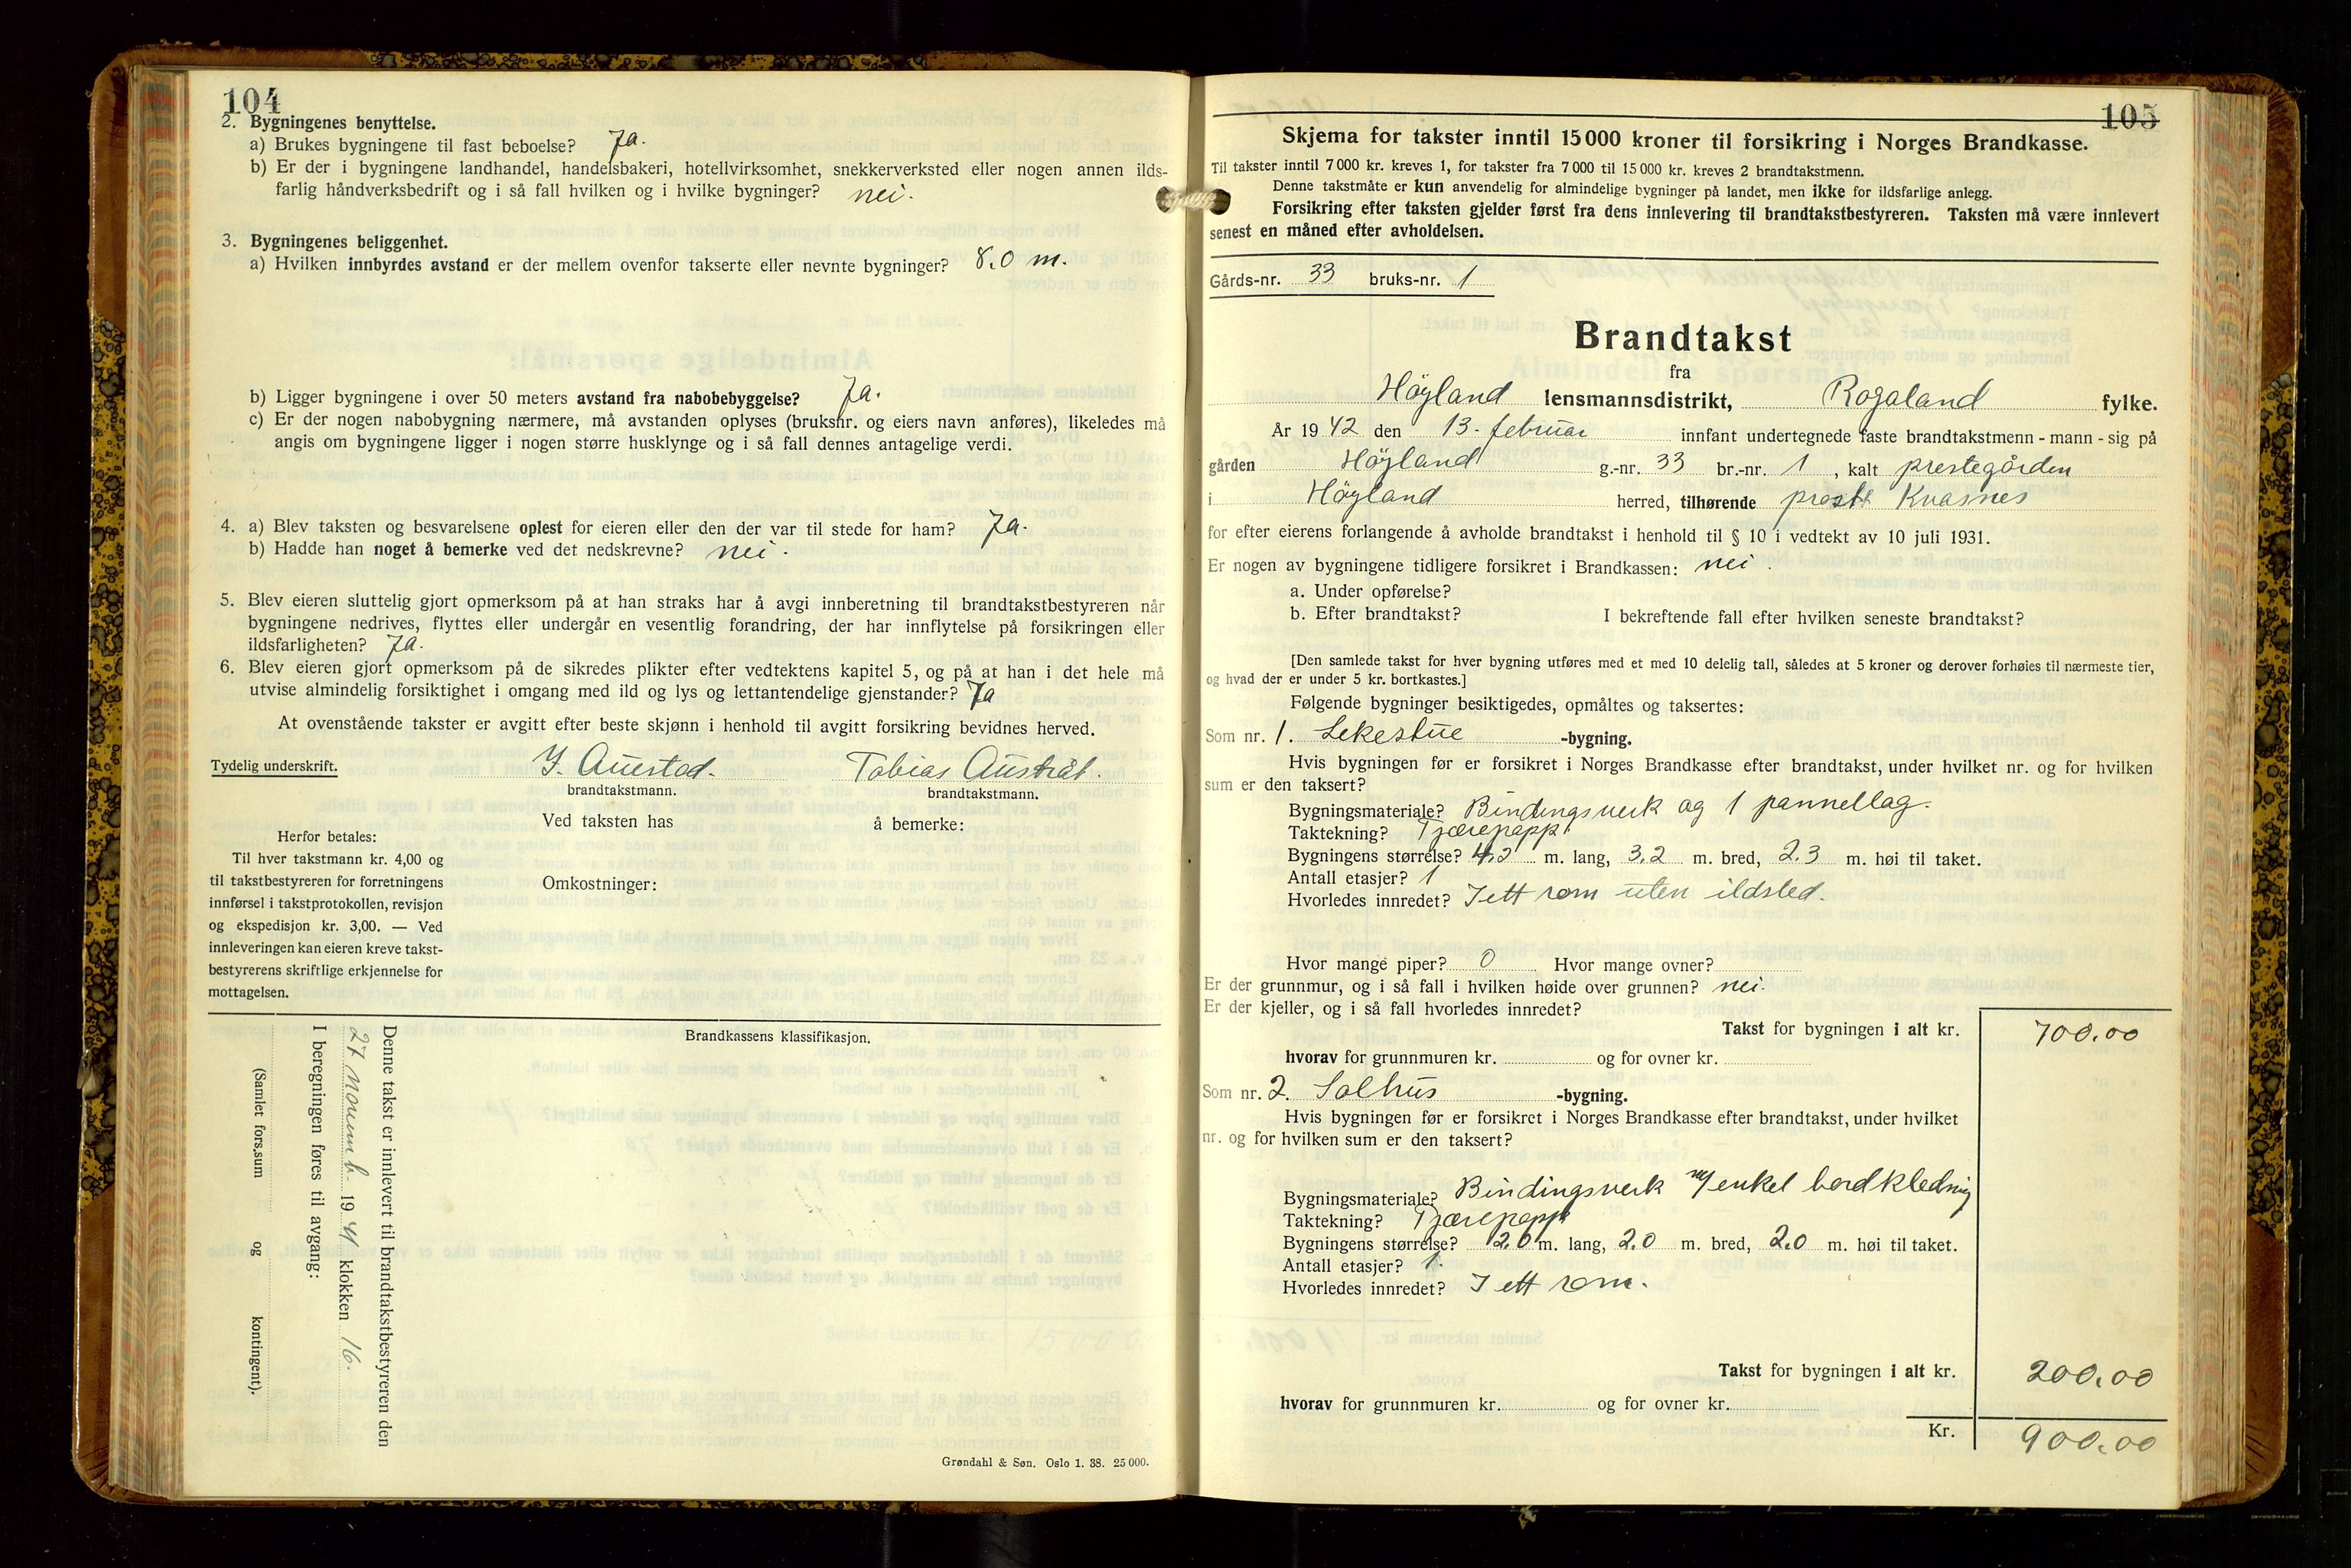 104
2. Bygningenes benyttelse.
a) Brukes bygningene til fast beboelse? Ja.
b) Er der i bygningene landhandel, handelsbakeri, hotellvirksomhet, snekkerverksted eller nogen annen ilds-
farlig håndverksbedrift og i så fall hvilken og i hvilke bygninger? nei.
3. Bygningenes beliggenhet.
a) Hvilken innbyrdes avstand er der mellem ovenfor takserte eller nevnte bygninger? 8.0 m.
b) Ligger bygningene i over 50 meters avstand fra nabobebyggelse? Ja.
c) Er der nogen nabobygning nærmere, må avstanden oplyses (bruksnr. og eiers navn anføres), likeledes må
angis om bygningene ligger i nogen større husklynge og i så fall dennes antagelige verdi.
4. a) Blev taksten og besvarelsene oplest for eieren eller den der var til stede for ham? Ja.
b) Hadde han noget å bemerke ved det nedskrevne? nei.
5. Blev eieren sluttelig gjort opmerksom på at han straks har å avgi innberetning til brandtakstbestyreren når
bygningene nedrives, flyttes eller undergår en vesentlig forandring, der har innflytelse på forsikringen eller
ildsfarligheten? Ja.
6. Blev eieren gjort opmerksom på de sikredes plikter efter vedtektens kapitel 5, og på at han i det hele må
utvise almindelig forsiktighet i omgang med ild og lys og lettantendelige gjenstander? Ja
At ovenstående takster er avgitt efter beste skjønn i henhold til avgitt forsikring bevidnes herved.
Tydelig underskrift. Y. Auestad. Tobias Austråt.
brandtakstmann. brandtakstmann.
Ved taksten has å bemerke:
Herfor betales:
Til hver takstmann kr. 4,00 og
til takstbestyreren for forretningens
innførsel i takstprotokollen, revisjon
og ekspedisjon kr. 3,00. — Ved
innleveringen kan eieren kreve takst-
bestyrerens skriftlige erkjennelse for
mottagelsen.
Omkostninger:
Brandkassens klassifikasjon.
Denne takst er innlevert til brandtakstbestyreren den
27 novemb. 1941 klokken 16.
I beregningen føres til avgang:
(Samlet fors,sum og kontingent).
Grøndahl & Søn. Oslo 1. 38. 25 000.
105
Skjema for takster inntil 15 000 kroner til forsikring i Norges Brandkasse.
Til takster inntil 7 000 kr. kreves 1, for takster fra 7 000 til 15 000 kr. kreves 2 brandtakstmenn.
Denne takstmåte er kun anvendelig for almindelige bygninger på landet, men ikke for ildsfarlige anlegg.
Forsikring efter taksten gjelder først fra dens innlevering til brandtakstbestyreren. Taksten må være innlevert
senest en måned efter avholdelsen.
Gårds-nr. 33 bruks-nr. 1
Brandtakst
fra
Høyland lensmannsdistrikt, Rogaland fylke.
År 1942 den 13. februar innfant undertegnede faste brandtakstmenn - mann - sig på
gården Høyland g.-nr. 33 br.-nr. 1, kalt prestegården
i Høyland herred, tilhørende prost Kvasnes
for efter eierens forlangende å avholde brandtakst i henhold til § 10 i vedtekt av 10 juli 1931.
Er nogen av bygningene tidligere forsikret i Brandkassen: nei.
a. Under opførelse?
b. Efter brandtakst? I bekreftende fall efter hvilken seneste brandtakst?
[Den samlede takst for hver bygning utføres med et med 10 delelig tall, således at 5 kroner og derover forhøies til nærmeste tier,
og hvad der er under 5 kr. bortkastes.]
Følgende bygninger besiktigedes, opmåltes og taksertes:
Som nr. 1. Lekestue -bygning.
Hvis bygningen før er forsikret i Norges Brandkasse efter brandtakst, under hvilket nr. og for hvilken
sum er den taksert?
Bygningsmateriale? Bindingsverk og 1 pannellag.
Taktekning? Tjærepapp
Bygningens størrelse? 4.2 m. lang, 3.2 m. bred, 2.3 m. høi til taket.
Antall etasjer? 1
Hvorledes innredet? I ett rom uten ildsted.
Hvor mange piper? 0 Hvor mange ovner?
Er der grunnmur, og i så fall i hvilken høide over grunnen? nei.
Er der kjeller, og i så fall hvorledes innredet?
Takst for bygningen i alt kr. 700.00
hvorav for grunnmuren kr. og for ovner kr.
Som nr. 2. Solhus -bygning.
Hvis bygningen før er forsikret i Norges Brandkasse efter brandtakst, under hvilket
nr. og for hvilken sum er den taksert?
Bygningsmateriale? Bindingsverk m/ enkel bordkledning
Taktekning? Tjærepapp
Bygningens størrelse? 2.0 m. lang, 2.0 m. bred, 2.0 m. høi til taket.
Antall etasjer? 1.
Hvorledes innredet? I ett rom.
Takst for bygningen i alt kr. 200.00
hvorav for grunnmuren kr. og for ovner kr.
Kr. 900.00